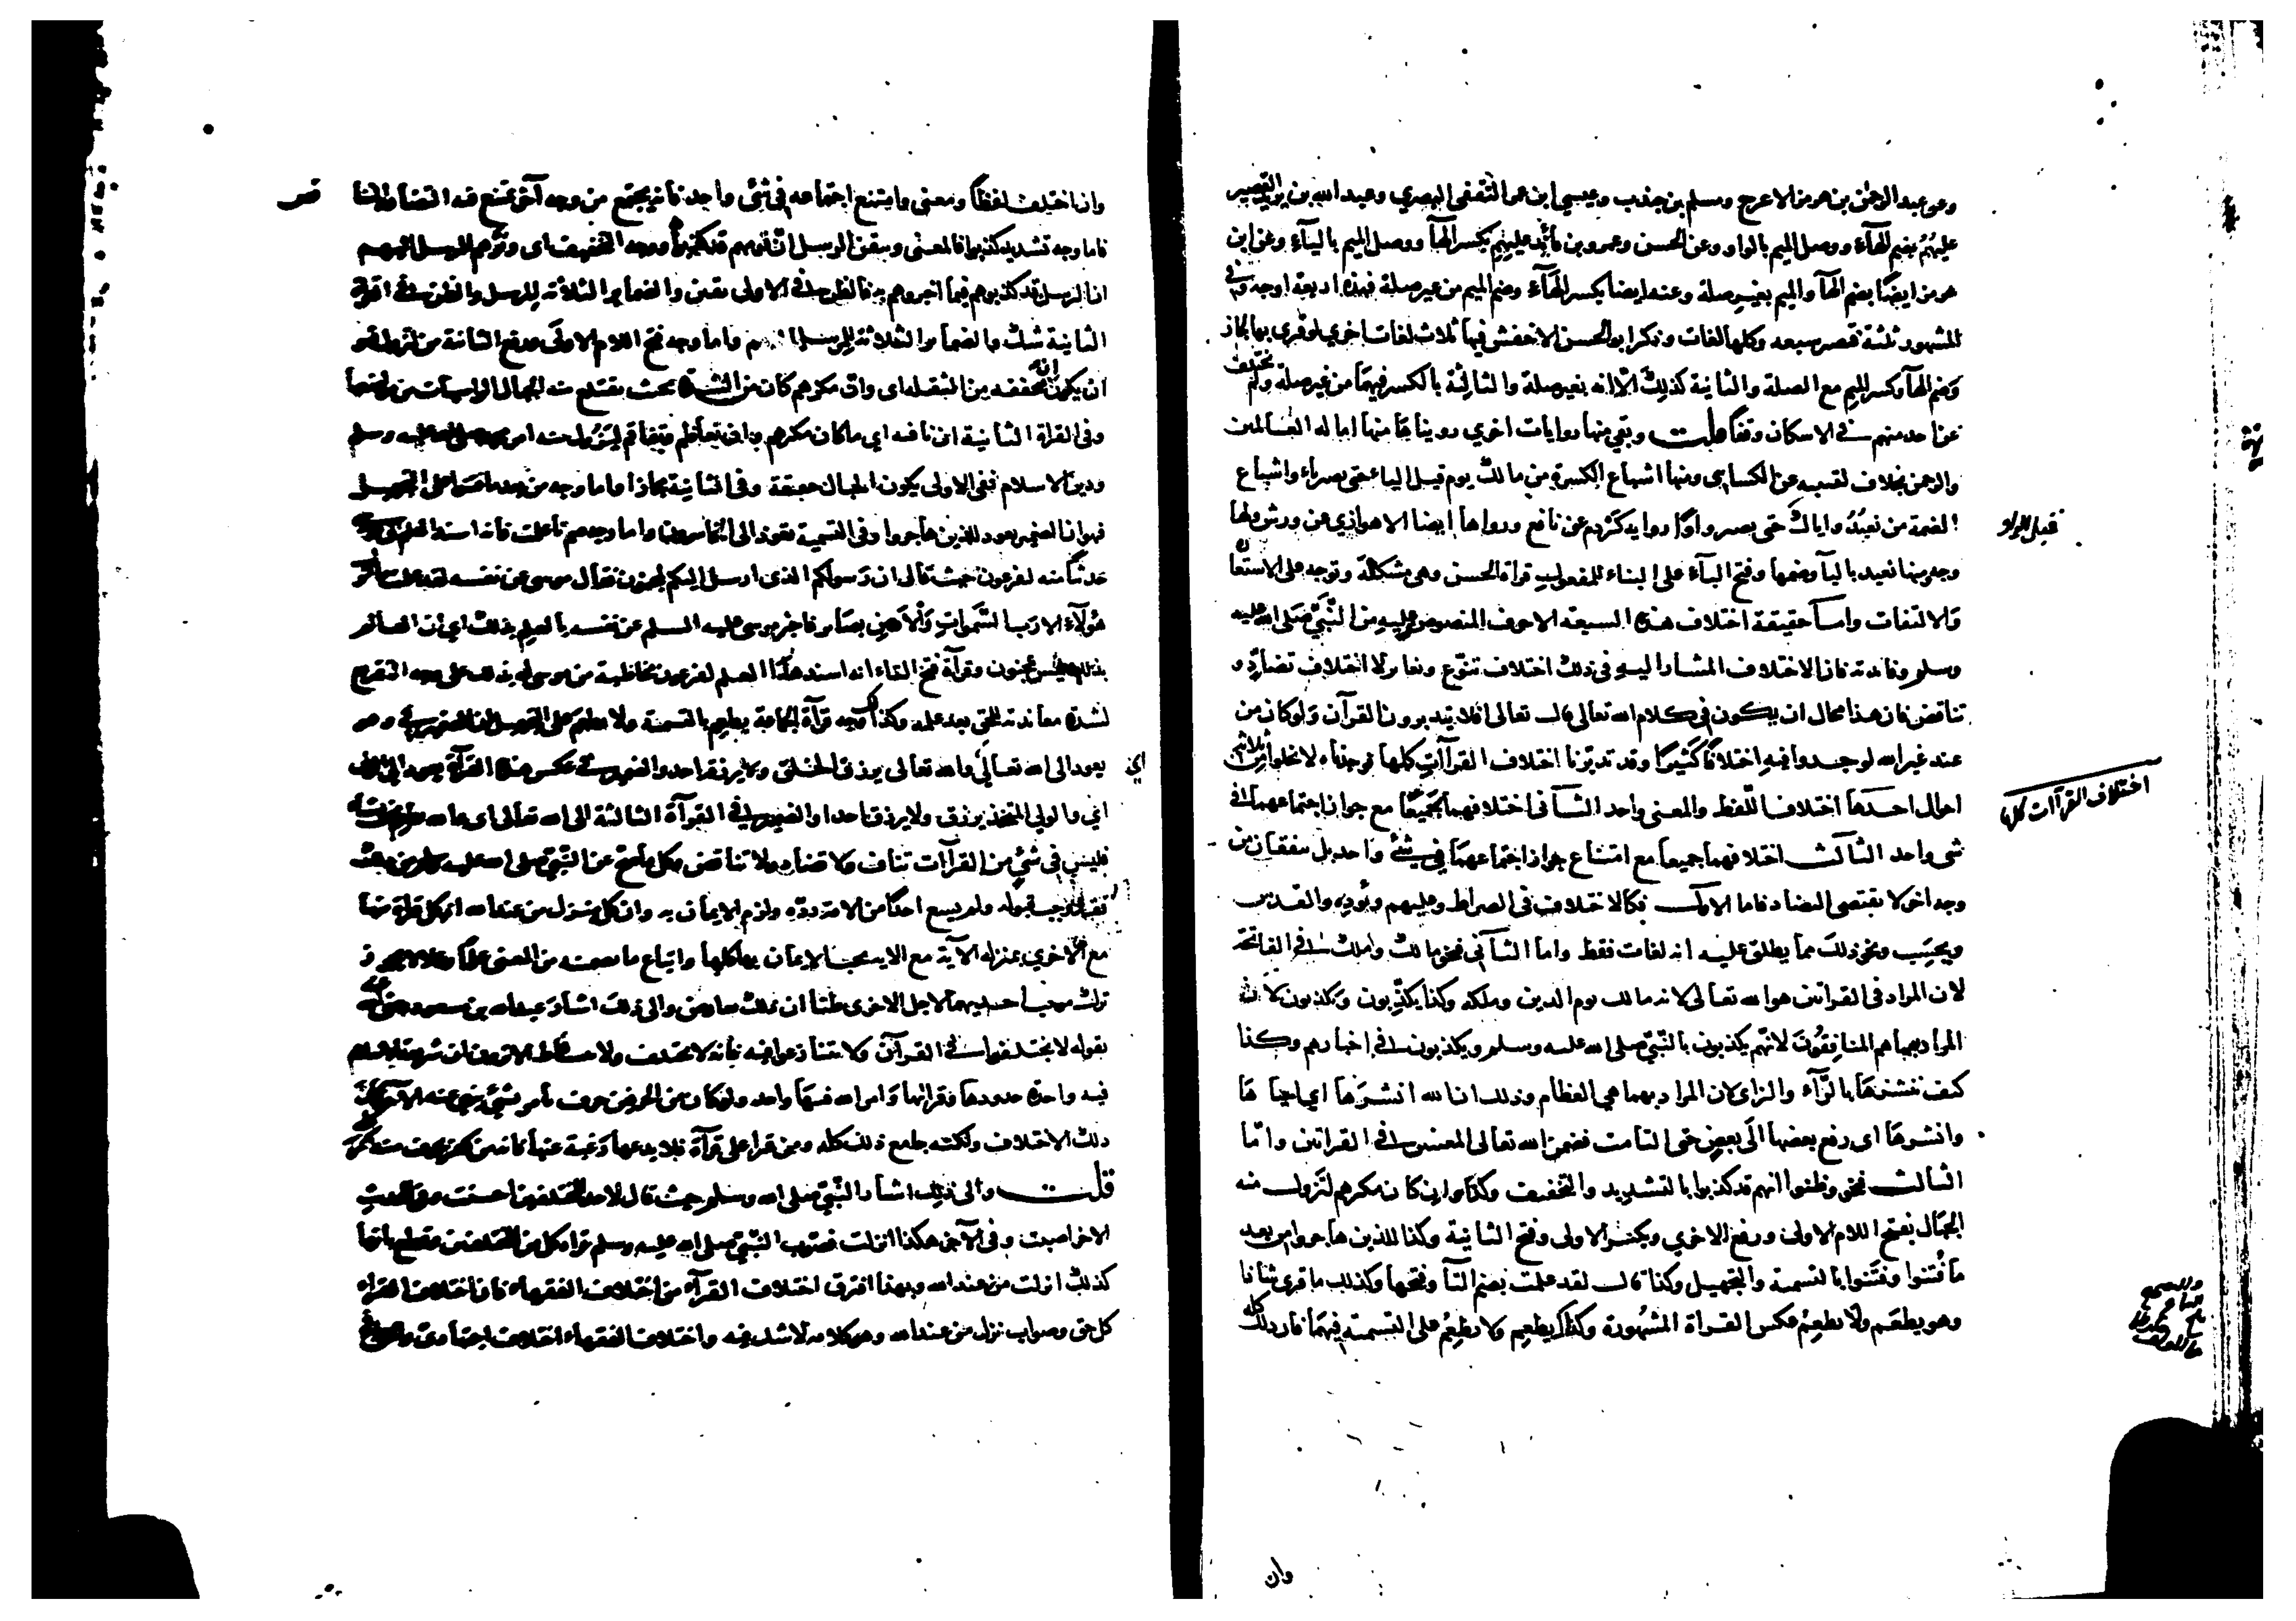 وعن عبد الرحمن بن هرمز الاعرج ومسلم بن جندب وعيسى ابن عمر الثقفي البصري وعبد الله بن يزيد القصير
عليهُمُ بضم الهآء ووصل الميم بالواو وعن الحسن وعمرو بن فآئد عليهِمِ بكسر الهآ ووصل الميم باليآء وعن ابن
هرمز ايضًا بضم الهآ والميم بغير صلة وعنه ايضا بكسر الهآء وضم الميم من غير صلة فهذه اربعة اوجه وفي
المشهور ثلثة فتصير سبعه وكلها لغات وذكر ابو الحسن الاخفش فيها ثلاث لغات اخري لو قري بها لجاز
وضم الهآ وكسر الميم مع الصلة والثانية كذلك الّا انه بغير صلة والثالثة بالكسر فيهما من غير صلة ولم يختلف
عن احد منهم في الاسكان وقفا قلت وبقي منها روايات اخري رويناها منها اماله العالمين
والرحمن بخلاف لقتيبه عن الكسائي ومنها اشباع الكسرة من مالك يوم قبل الياء حتى يصير ياء واشباع
الضمة من نعبُدُ واياك حتى يصير واوًا رواية كردم عن نافع ورواها ايضا الاهوازي عن ورش ولها
قبل الواو
وجه ومنها نعبد باليآ وضمها وفتح البآء على البناء للمفعول قراة الحسن وهي مشكلة وتوجه على الاستعارة
والالتفات وامـا حقيقة اختلاف هذه السبعة الاحرف المنصوص عليه من النّبيّ صلى الله عليه
وسلم وفائدته فان الاختلاف المشار اليه في ذلك اختلاف تنوّع وتغاير لا اختلاف تضادّ و
تناقض فان هذا محال ان يكون في كلام الله تعالى قال تعالى افلا يتدبرون القرآن ولو كان من
عند غير الله لوجدوا فيه اختلافًا كثيرًا وقد تدبرنا اختلاف القراآت كلها فوجدناه لا يخلوا من ثلاثة
اختلاف القراآت كلها
احوال احدها اختلاف اللّفظ والمعنى واحد الثـاني اختلافهما جميعًا مع جواز اجتماعهما في
شي واحد الثالث اختلافهما جميعا مع امتناع جواز اجتماعهما في شئ واحد بل يتفقان من
وجه اخر لا يقتضي التضاد فاما الاول فكالاختلاف في الصراط وعليهم ويُؤدِه والقدس
ويحسَب ونحو ذلك مما يطلق عليه انه لغات فقط واما الثـاني فنحو مالك وملك في الفاتحة
لان المراد في القراتين هو الله تعالى لانه مالك يوم الدين وملكه وكذا يكذّبون ويكذبون لان
المراد بهما هم المنافقُونَ لانّهم يكذبون بالنّبيّ صلى الله عليه وسلم ويكذبون في اخبارهم وكذا
كيف ننشزها بالرّآء والزاى لان المراد بهما هي العظام وذلك ان الله انشرَها اي احياها
وانشزها اى رفع بعضها الى بعض حتى التأمت فضمن الله تعالى المعنيين في القراتين وامّا
الثالث فنحو وظنوا انهم قد كذبوا بالتشديد والتخفيف وكذا وان كان مكرهم لتزول منه
الجبال بفتح اللام الاولى ورفع الاخري وبكسر الاولى وفتح الثانية وكذا للذين هاجروا من بعد
ما فُتنوا وفَتنوا بالتسمية والتجهيل وكذا قال لقد علمت بضم التآ وفتحها وكذلك ما قرئ شاذا
وهو يطعَم ولا يطعِم عكس القراة المشهورة وكذلك يطعِم ولا يطعِم على التسمية فيهما فان ذلك كله
وان
وان اختلف لفظًا ومعنى وامتنع اجتماعه في شئ واحد فانه يجتمع من وجه آخر يمتنع فيه التضاد والتنا
قض
فاما وجه تشديد كذبوا فالمعنى وتيقن الرسل انّ قومهم قد كذبوهم ووجه التخفيف اى وتوهم المرسل اليهم
ان الرسل قد كذبوهم فيما اخبروهم به فالظن في الاولى يقين والضمائر الثلاثة للرسل والظن في القراة
الثانية شك والضمائر الثلاثة للمرسل اليهم واما وجه فتح اللام الاولى ورفع الثانية من لتزول فهو
ان يكون ان مخففة من الثقيله اى وان مكرهم كان من الشدة بحيث تقتلع منه الجبال الراسيات من مواضعها
وفي القراة الثانية ان نافيه اي ما كان مكرهم وان تعاظم وتفاقم ليَزُول منه امر محمد صلى الله عليه وسلم
ودين الاسلام ففي الاولى يكون الجبال حقيقة وفي الثانية مجازا واما وجه من بعد ما فتنوا على التجهيل
فهو ان الضمير يعود للذين هاجروا وفي التسمية يعود الى
حديثًا منه لفرعون حيث قال ان رسولكم الذى ارسل اليكم لمجنون فقال موسى عن نفسه لقد علمت ما انزل
هٰؤلاء الا رب السّمٰوات والأرض بصائر فاخبر موسى عليه السلم عن نفسه بالعلم بذلك اي ان العالم
بذلك ليس بمجنون وقرآة فتح التاء انه اسند هذا العلم لفرعون مخاطبة من موسى له بذلك على وجه التقريع
لشدة معاندته للحق بعد علمه وكذلك وجه قرآة الجماعة يطعِم بالتسمية ولا يطعَم على التجهيل ان الضمير في وهو
يعود الى الله تعالي اي والله تعالى يرزق الخلق ولا يرزقه احد والضمير في عكس هذه القرآة يعود الى الولي
اي والولي المتخذ يرزق ولا يرزق احدا والضمير في القرآة الثالثة الى الله تعالى اى والله يطعم من يشاء
فليس في شئ من القرآات تناف ولا تضاد ولا تناقض وكل ما صح عن النّبيّ صلى الله عليه وسلم من ذلك
فقد وجب قبوله ولم يسع احدًا من الامة ردّه ولزم الايمان به وان كله منزل من عند الله اذ كل قراة منها
مع الاخري بمنزلة الآية مع الآية يجب الايمان بها كلها واتباع ما تضمنته من المعنى علمًا وعملا لا يجوز
ترك موجب احديهما لاجل الاخرى ظنا ان ذلك تعارض والى ذلك اشار عبد الله بن مسعود رضي الله عنه
بقوله لا تختلفوا في القرآن ولا تتنازعوا فيه فانه لا يختلف ولا يتساقط الا ترون ان شريعة الاسلام
فيه واحدة حدودها وقرآتها وامر الله فيها واحد ولو كان من الحرفين حرف يأمر بشئ ينهى عنه الآخر كان
ذلك الاختلاف ولكنه جامع ذلك كله ومن قرا على قرآة فلا يدعها رغبة عنها فانه من كفر بحرف منه كفر به كله
قلت والى ذلك اشار النّبيّ صلى الله وسلم حيث قال لاحد المختلفين احسنت وفي الحديث
الاخر اصبت وفي الآخر هكذا انزلت فصوب النّبيّ صلى الله عليه وسلم قراة كل من المختلفين وقطع بانها
كذلك انزلت من عند الله وبهذا افترق اختلاف القرآء من اختلاف الفقهاء فان اختلاف القراء
كل حق وصواب نزل من عند الله وهو كلامه لا شك فيه واختلاف الفقهاء اختلاف اجتهادي